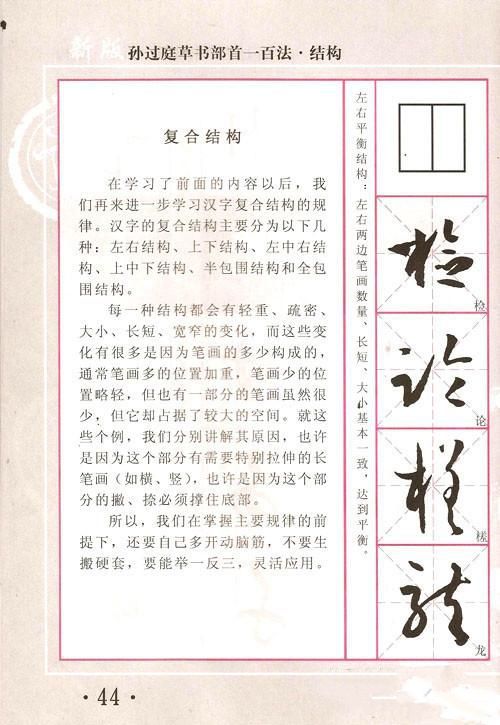 新版 孙过庭草书部首一百法·结构
复合结构
在学习了前面的内容以后，我
们再来进一步学习汉字复合结构的规
律。汉字的复合结构主要分为以下几
种：左右结构、上下结构、左中右结
构、上中下结构、半包围结构和全包
围结构。
每一种结构都会有轻重、疏密、
大小、长短、宽窄的变化，而这些变
化有很多是因为笔画的多少构成的，
通常笔画多的位置加重，笔画少的位
置略轻，但也有一部分的笔画虽然很
少，但它却占据了较大的空间。就这
些个例，我们分别讲解其原因，也许
是因为这个部分有需要特别拉伸的长
笔画（如横、竖），也许是因为这个部
分的撇、捺必须撑住底部。
所以，我们在掌握主要规律的前
提下，还要自己多开动脑筋，不要生
搬硬套，要能举一反三，灵活应用。
左右平衡结构：左右两边笔画数量、长短、大小基本一致，达到平衡。
检
论
槎
龙
·44·